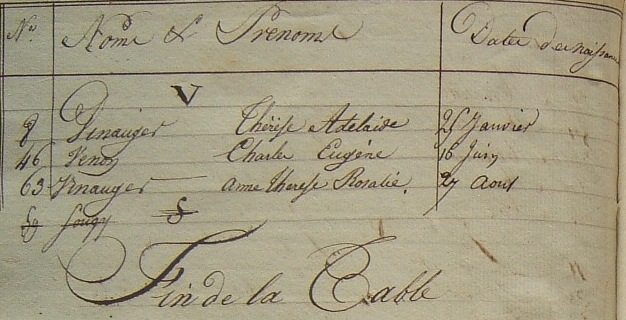 Nos Noms & Prenoms Dates de naissance
V
8 Vinauger Thérése Adelaide 25 Janvier
46 Venon Charles Eugéne 16 Juin
63 Vinauger anne therese Rosalie. 27 Aout
Sougy S
Fin de la Table